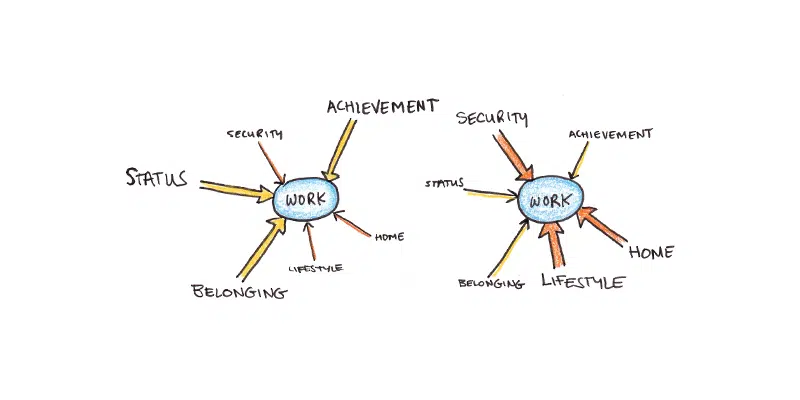 ACHIEVEMENT
SECURITY
STATUS
WORK
HOME
LIFESTYLE
BELONGING
SECURITY
ACHIEVEMENT
STATUS
WORK
HOME
BELONGING
LIFESTYLE